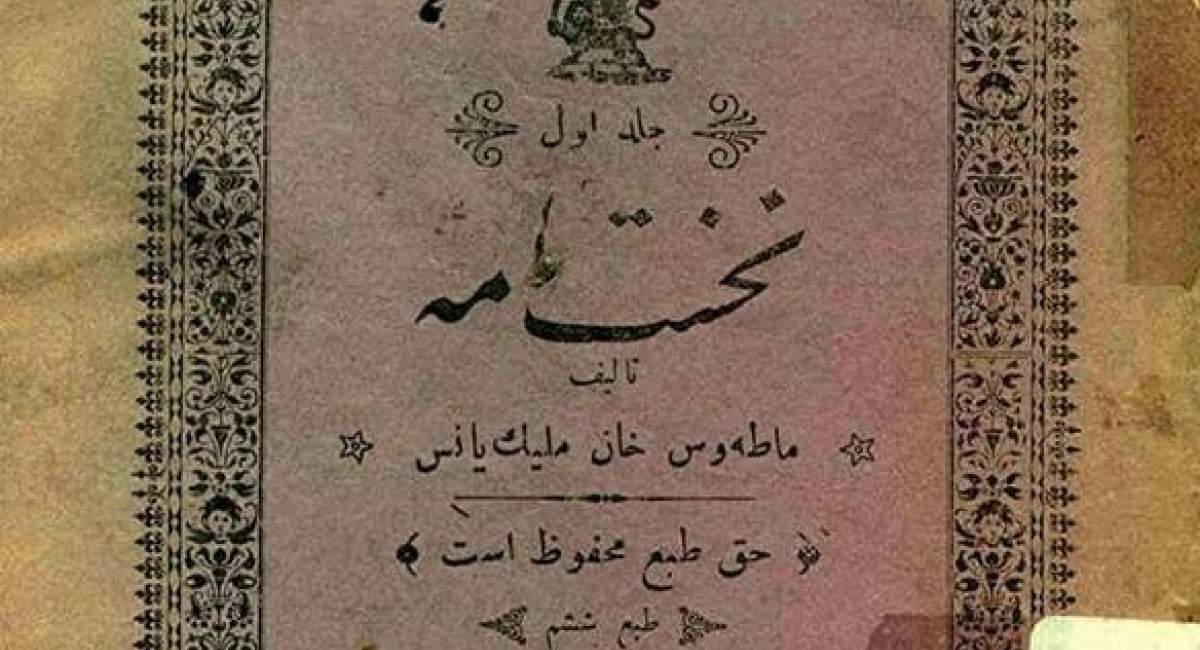 جلد اول
نخستنامه
تالیف
ماطه‌وس خان ملیك‌یانس
حق طبع محفوظ است
طبع ششم